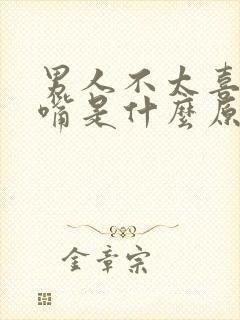 男人不太喜
嘴是什麼原
金章宗